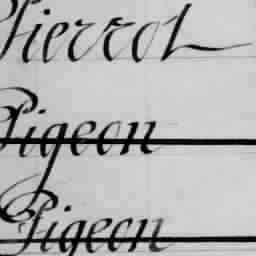 Pierrot
Pigeon
Pigeon